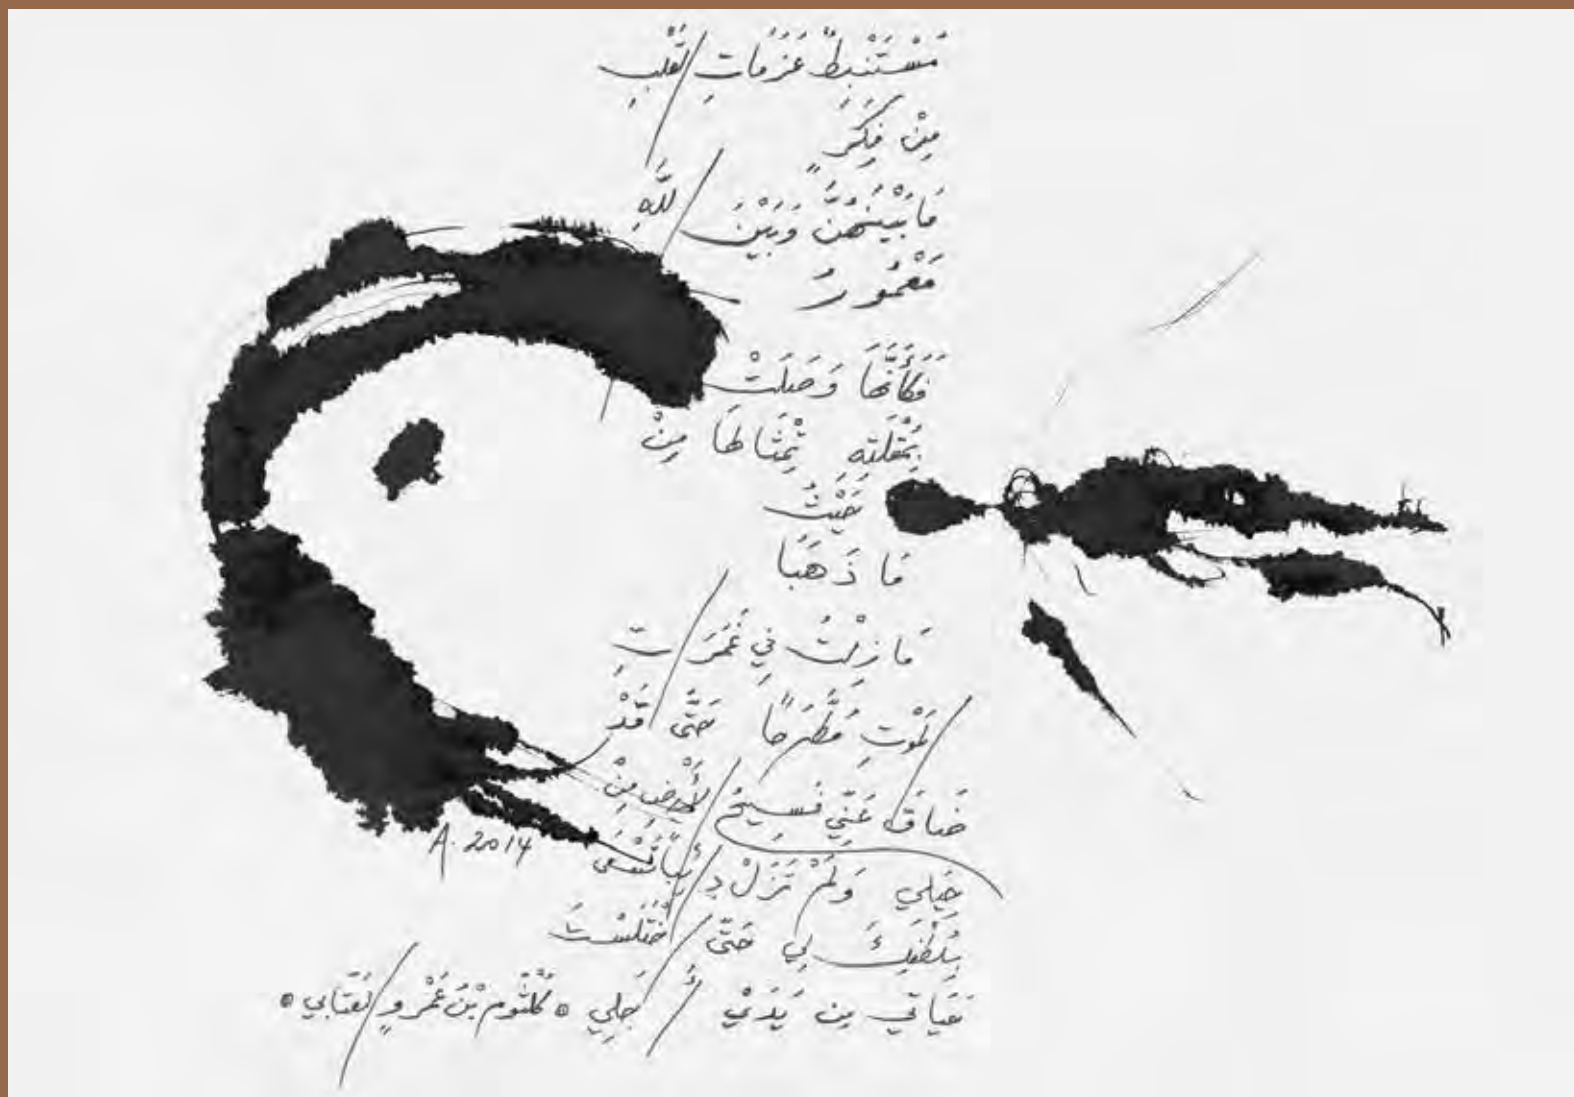 مُسْتَنْبِطٌ عَزَمَاتِ القَلْبِ
مِنْ فِكَرٍ
مَا بَيْنَهُنَّ وَبَيْنَ اللهِ
مَعْمُورُ
فَكَأَنَّهَا وَصَلَتْ
بِمُقْلَتِهِ تِمْثَالَهَا مِنْ
حَيْثُ
مَا ذَهَبَا
مَا زِلْتُ فِي غَمَرَاتِ
المَوْتِ مُطَّرَحًا حَتَّى قَدْ
ضَاقَ عَنِّي فَسِيحُ الأَرْضِ مِنْ
حِيَلِي وَلَمْ تَزَلْ دَائِبًا تَسْعَى
بِلُطْفِكَ لِي حَتَّى اخْتَلَسْتَ
حَيَاتِي مِن يَدَيْ أَجَلِي * كُلْثُوم بْنُ عَمْرٍو العَتَّابي *
A. 2014